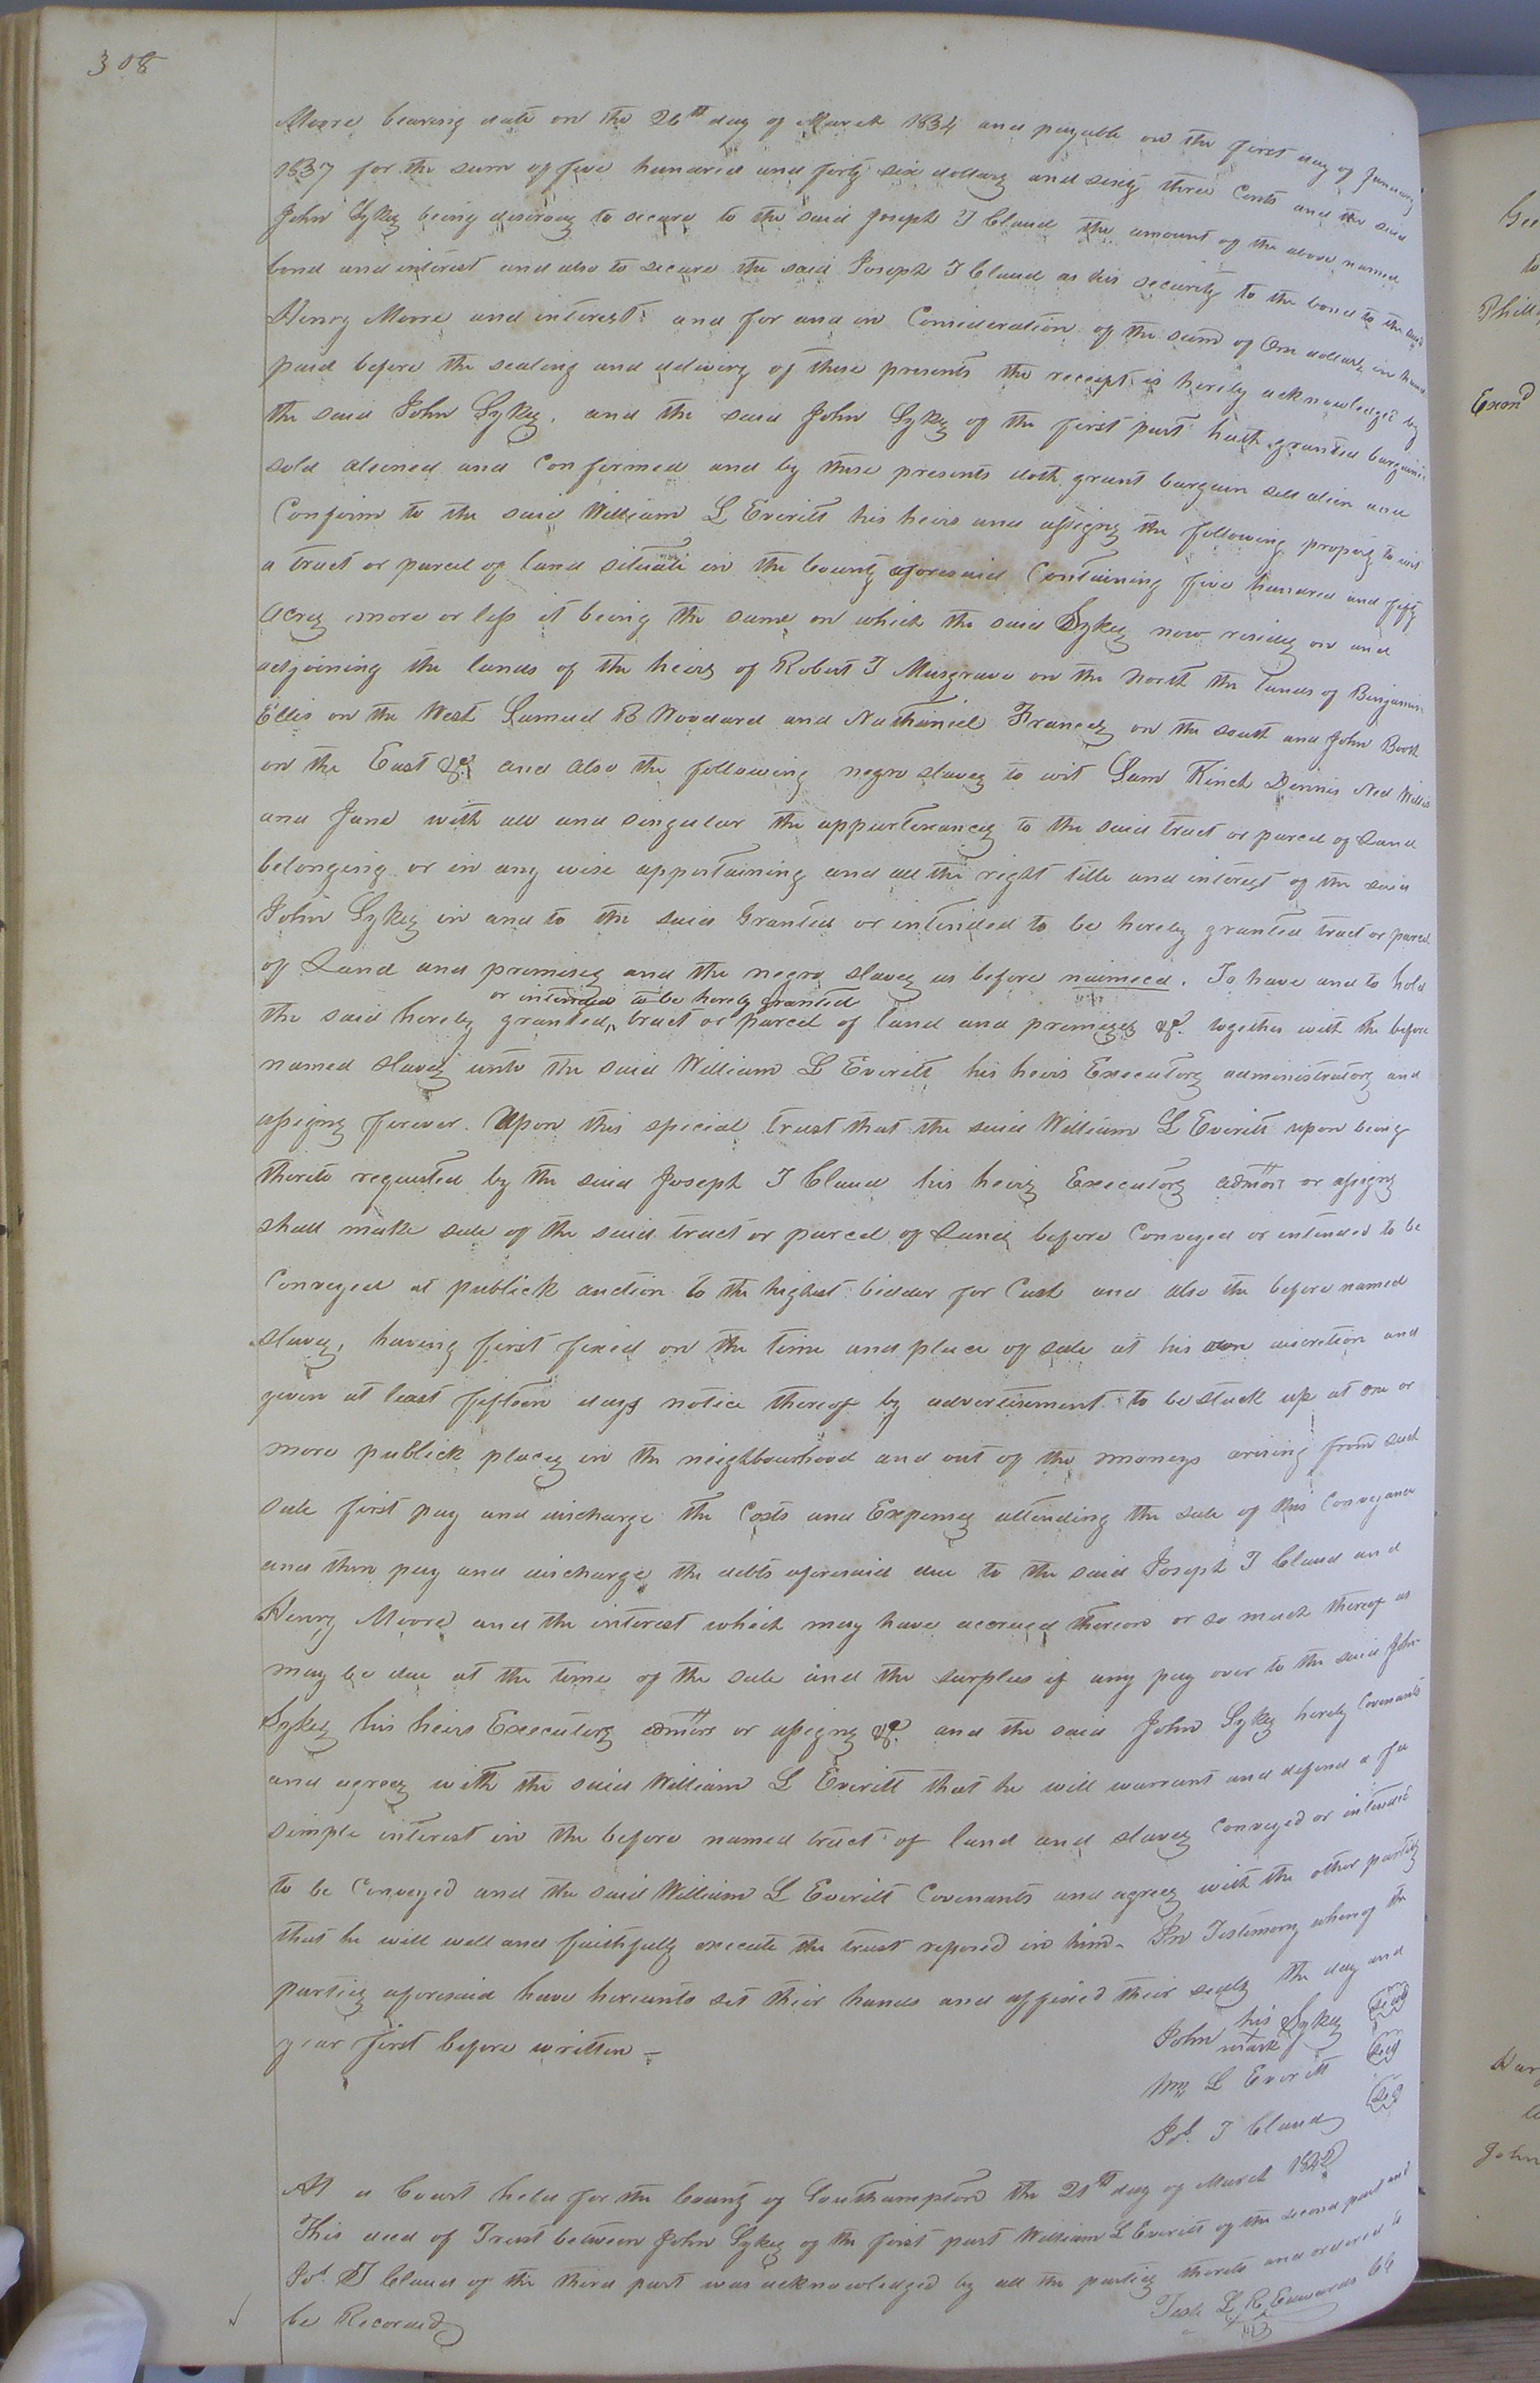 308
Moore bearing date on the 26th day of March 1834 and payable on the first day of January
1837 for the sum of five hundred and forty six dollars and sixty three Cents and the said
John Sykes being desirous to secure to the said Joseph T Claud the amount of the above named
bond and interest and also to secure the said Joseph T Claud as his security to the bond to the said
Henry Moore and interest and for and in Consideration of the sum of One dollar, in hand
paid before the sealing and delivery of these presents the receipt is hereby acknowledged by
the said John Sykes, and the said John Sykes of the first part hath granted bargained
sold aliened and Confirmed and by these presents doth grant bargain sell alien and
Confirm to the said William L Everitt his heirs and assigns the following property to wit
a tract or parcel of land situate in the County aforesaid Containing five hundred and fifty
acres more or less it being the same on which the said Sykes now resides on and
adjoining the lands of the heirs of Robert T Musgrave on the North the lands of Benjamin
Ellis on the West Samuel B Woodard and Nathaniel Frances on the south and John Booth
on the East &c and also the following negro slaves to wit Sam Kinch Dennis Ned Willis
and Jane with all and singular the appurtenances to the said tract or parcel of Land
belonging or in any wise appertaining and all the right title and interest of the said
John Sykes in and to the said Granted or intended to be hereby granted tract or parcel
of Land and premises and the negro slaves as before naimeed. To have and to hold
or intended to be hereby granted
the said hereby granted, tract or parcel of land and premises &c. together with the before
named slaves unto the said William L Everitt his heirs Executors administrators and
assigns forever. Upon this special trust that the said William L Everitt upon being
thereto requested by the said Joseph T Claud his heirs Executors admors or assigns
shall make sale of the said tract or parcel of Land before Conveyed or intended to be
Conveyed at publick auction to the highest bidder for Cash and also the before named
slaves, having first fixed on the time and place of sale at his own discretion and
given at least fifteen days notice thereof by advertisement to be stuck up at one or
more publick places in the neighbourhood and out of the moneys arising from such
sale first pay and discharge the Costs and Expenses attending the sale of this Conveyance
and then pay and discharge the debts aforesaid due to the said Joseph T Claud and
Henry Moore and the interest which may have accrued thereon or so much thereof as
may be due at the time of the sale and the surplus if any pay over to the said John
Sykes his heirs Executors admors or assigns &c. and the said John Sykes hereby Covenants
and agrees with the said William L Everitt that he will warrant and defend a fee
simple interest in the before named tract of land and slaves Conveyed or intended
to be Conveyed and the said William L Everitt Covenants and agrees with the other parties
that he will well and faithfully execute the trust reposed in him - In Testimony whereof the
parties aforesaid have hereunto set their hands and affixed their seals the day and
year first before written -
John his mark Sykes seal
Wm L Everitt seal
Jos. T Claud seal
At a Court held for the County of Southampton the 21st day of March 1842
This deed of Trust between John Sykes of the first part William L Everitt of the second part and
Jos. T Claud of the third part was acknowledged by all the parties thereto and ordered to
be Recorded
Teste L R Edwards Clk